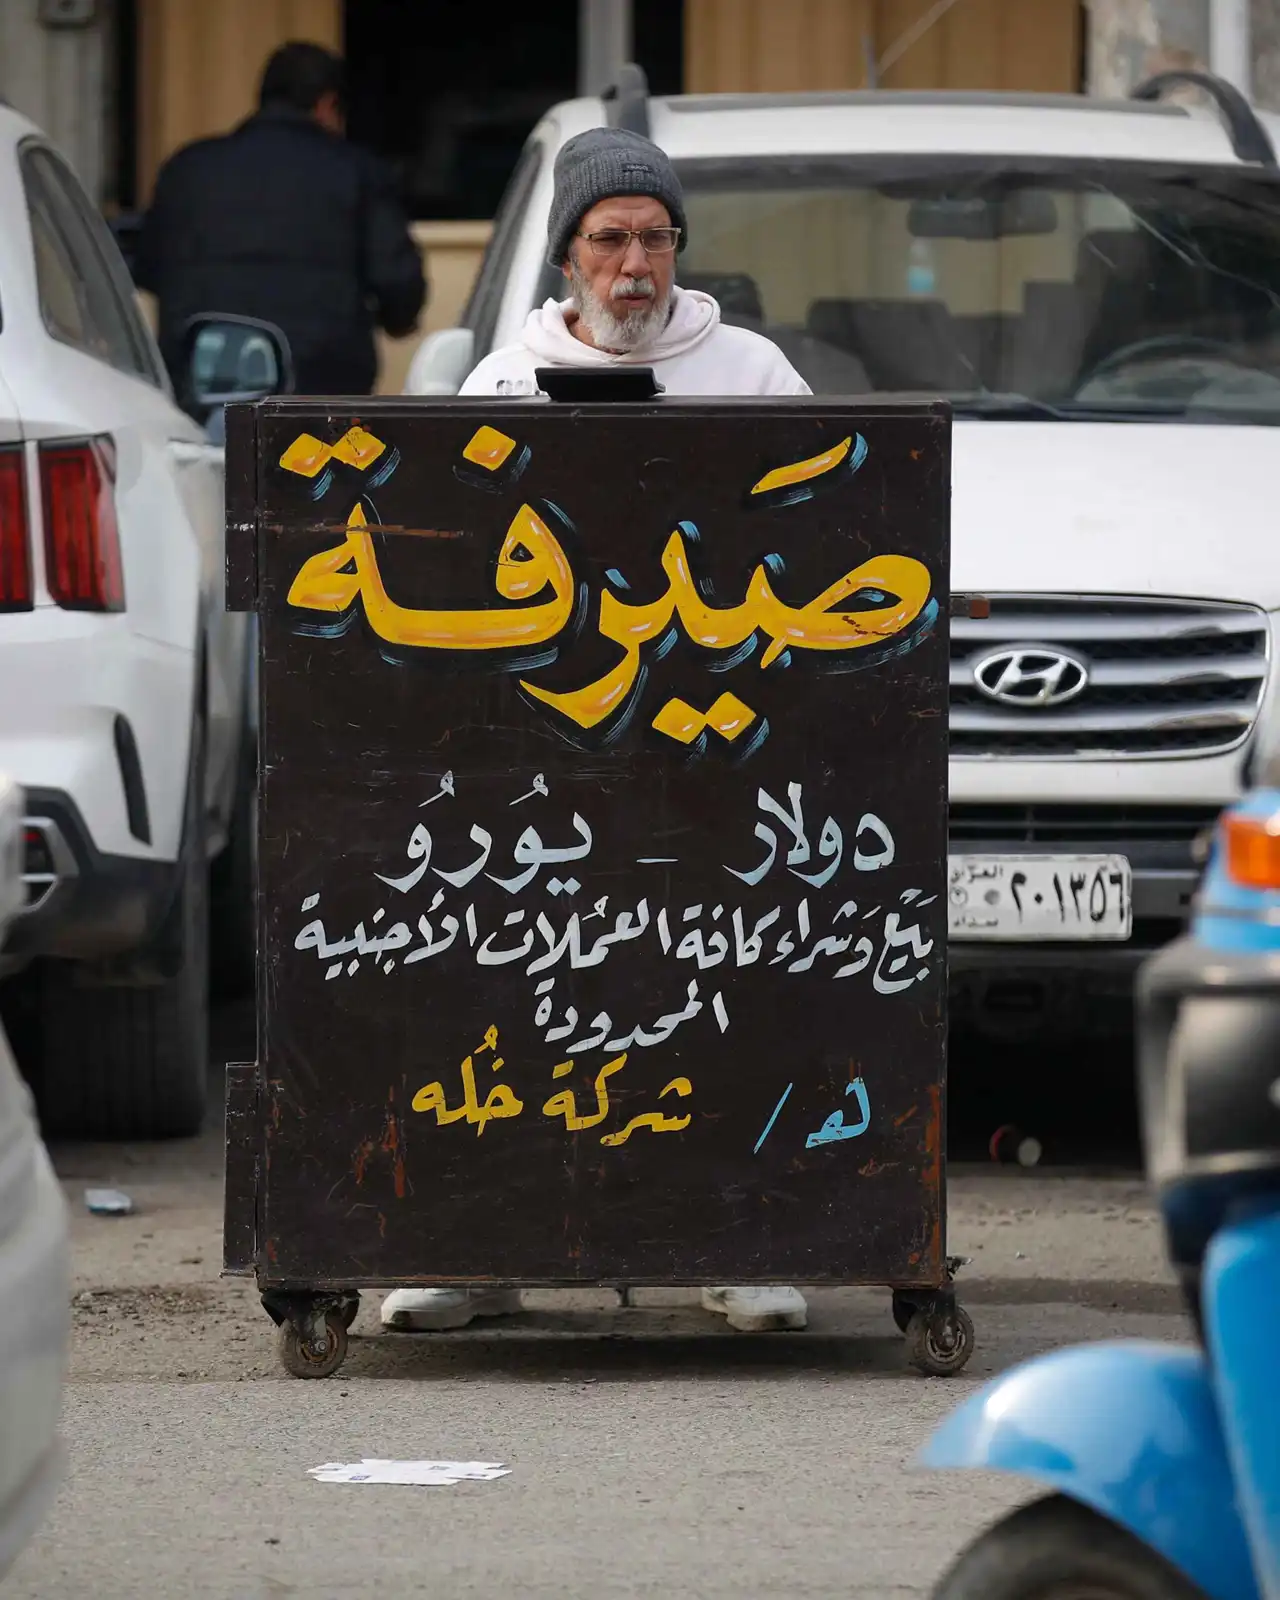 صَيرفة
دولار - يُورُو
بَيْع وَشراء كافة العُملات الأجنبية
المحدودة
لعد / شركة خُله
العراق
بغداد
٢٠١٣٥٦